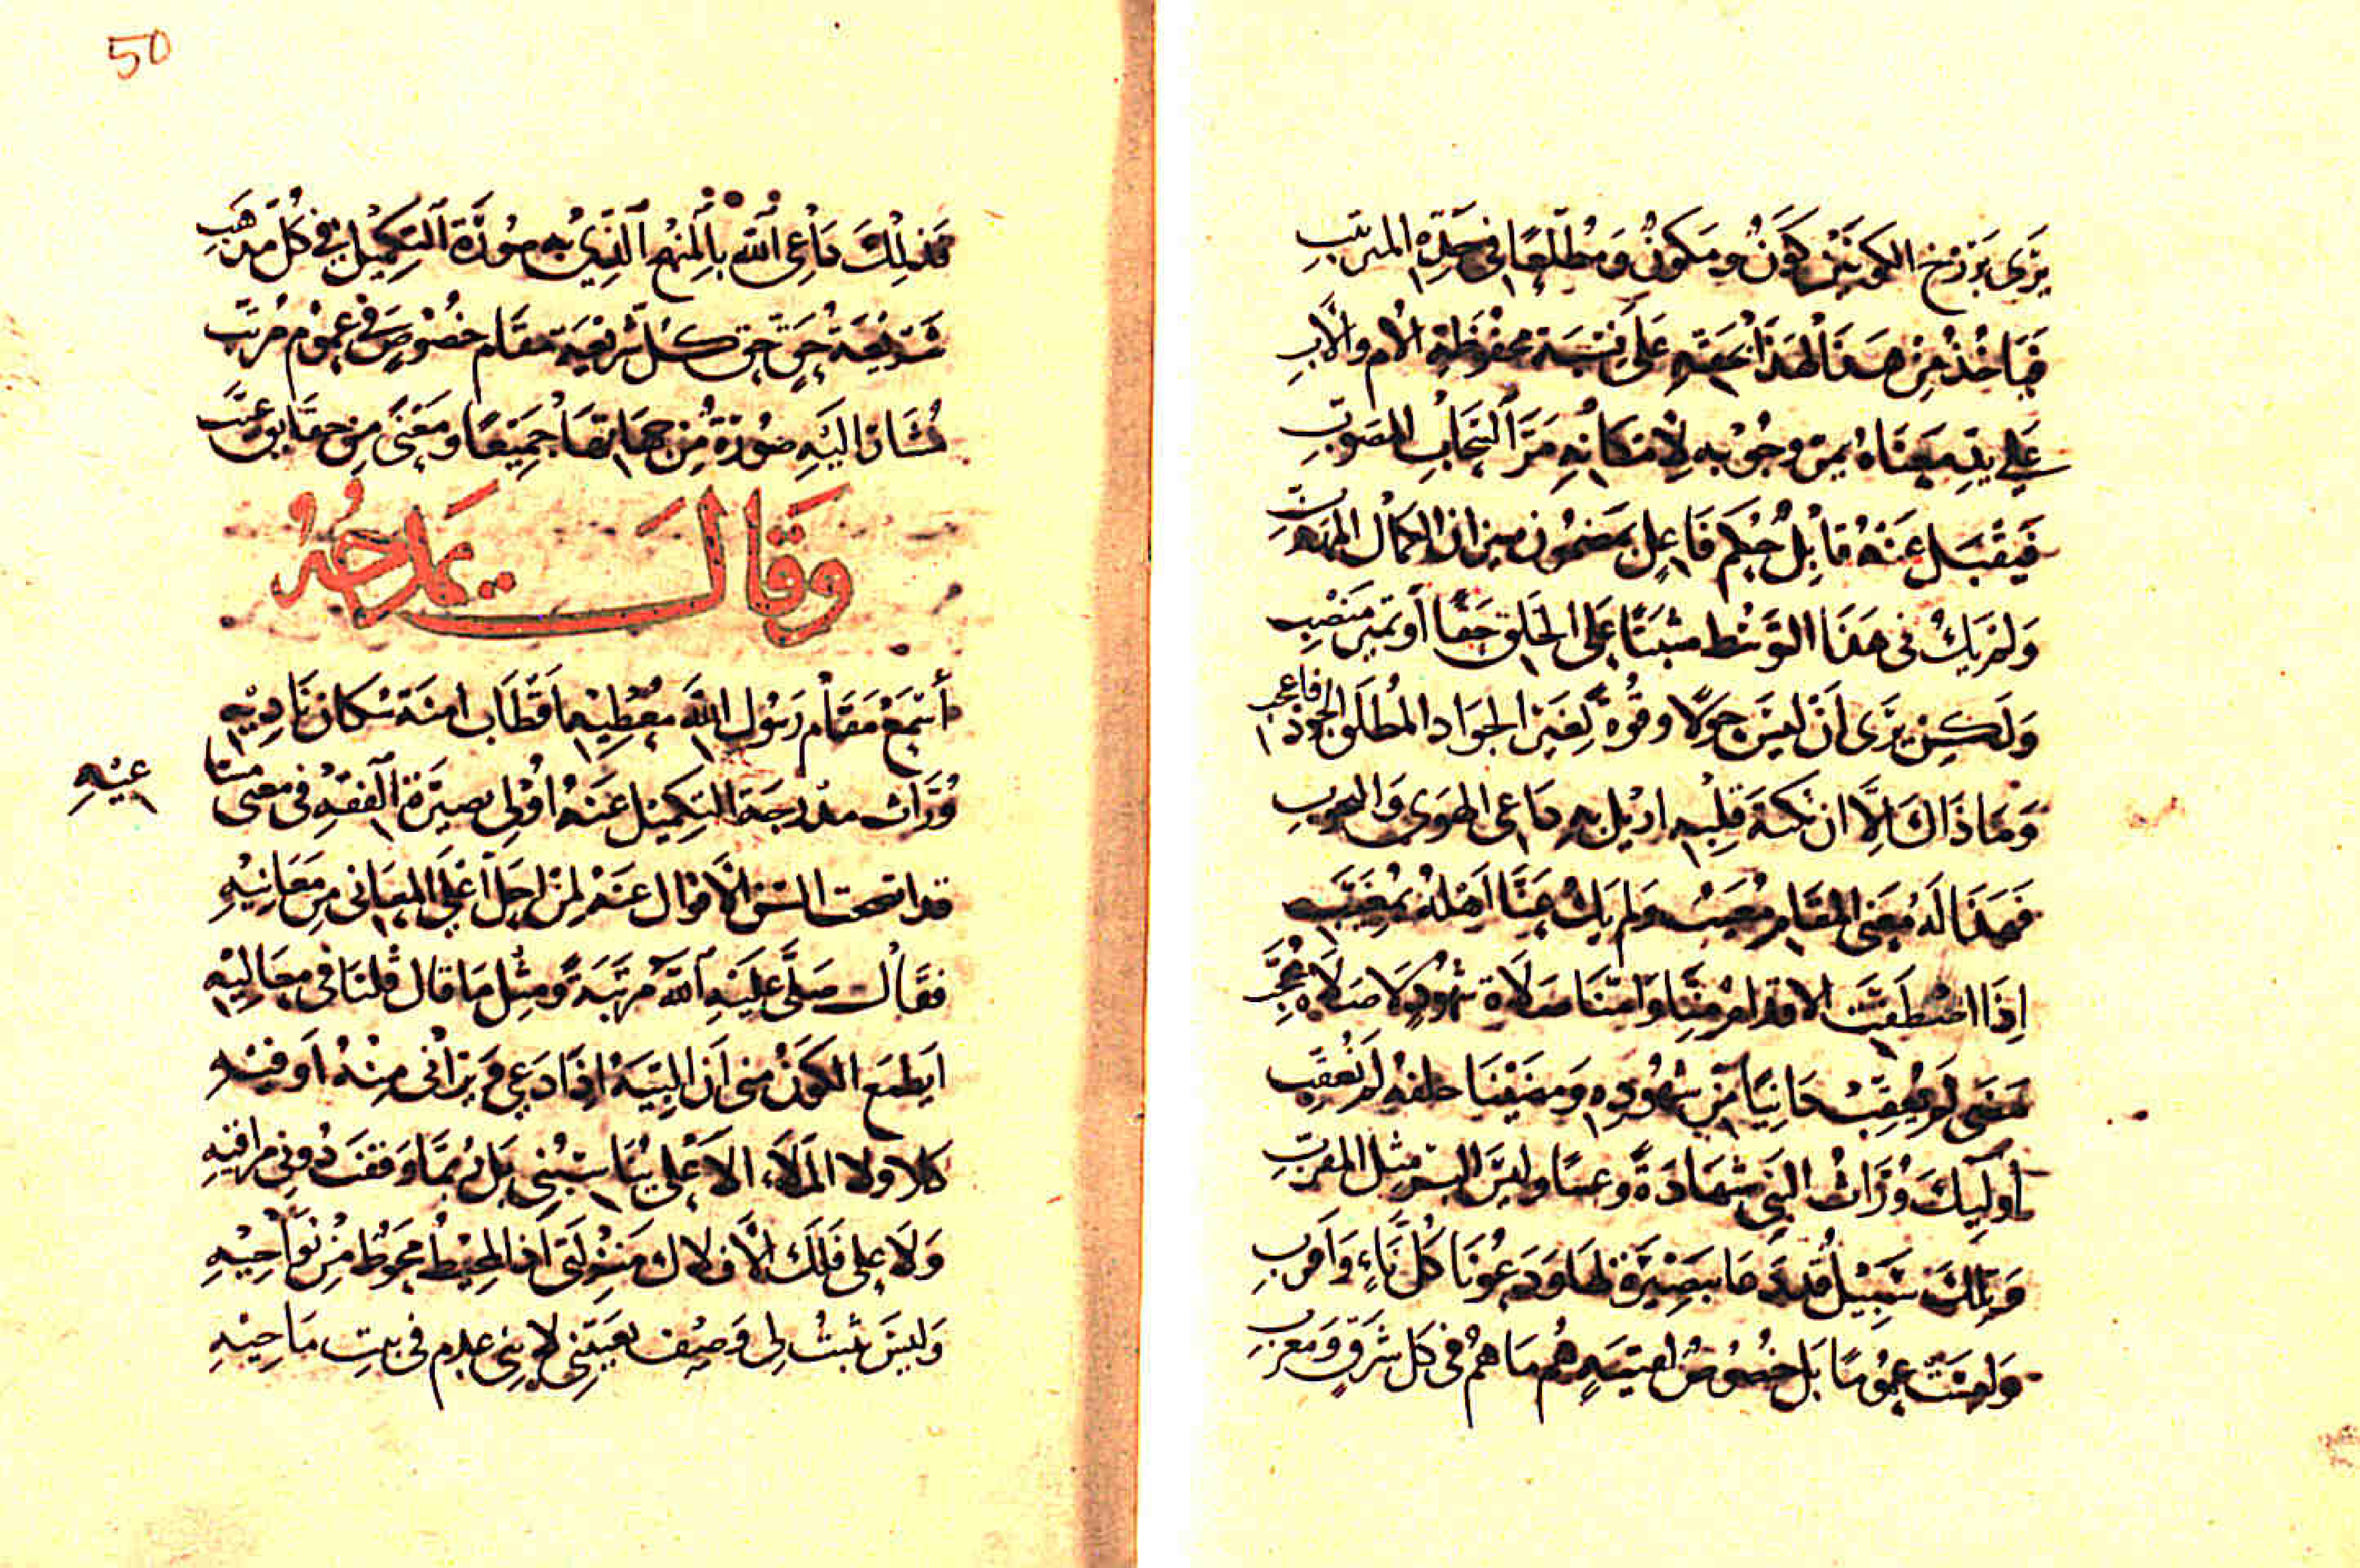 يرى برزخ الكونين كون ومكون ومطلعا في حلة المرتب
فياخذ من هذا لهذا بحقه على نسبة محفوظة الام والاب
على يد معناه يمر وجوبه لامكانه مر السحاب المصوب
فيقبل عنه قابل حكم فاعل بمضمون ميزان الكمال المهذب
ولم يك في هذا التوسط مثبتا على الخلق حقا او تميز منصب
ولكن يرى ان ليس حولا وقوة لغير الجواد المطلق الجود فاعجب
وما ذاك الا ان نكتة قلبه ازيل به داعى الهوى
فهذا له معنى المقام معيب ولم يك عنا اهله بمغيب
اذا اصطفت الاقدام منا وامنا صلاة شهود لا صلاة
مضى لم يعقب ثانيا من شهوده ومضينا خلفه لم نعقب
اوليك وراث النبي شهادة وليس البر مثل المقرب
وتلك سبيل قد دعا ببصيرة لها ودعونا كل ناء واقرب
وليست عموما بل خصوص لفتية هم ما هم في كل شرق ومغرب
50
فذلك داعى الله بالمنهج الذي به صورة التكميل في كل مذهب
شريعة حق حق كل شريعة مقام خصوص في عموم مرتب
مشارا اليه صورة من جهاتها جميعا ومعنى من حقايق غيب
وقال يمدحه
أسمع مقام رسول الله معطيه اقطاب امنة سكان ناديه
وراث مدرجة التكميل عنه اولى بصيرة الفقه في معنى مبنا
عنيه
قد السن الاقوال عنه لمن اجل اعلى المعانى من معانيه
فقال صلى عليه الله مرتبة ومثل ما قال قلنا في مجاليه
ايطمع الكون منى ان اليه اذا دعى ويرانى منه او فيه
كلا ولا الملا الاعلى يناسبنى بل ربما وقفت دونى مراقيه
ولا على فلك الافلاك منزلتى انا المحيط محوط من نواحيه
وليس يثبت لى وصف يعينى لاننى عدم في بيت ماحيه